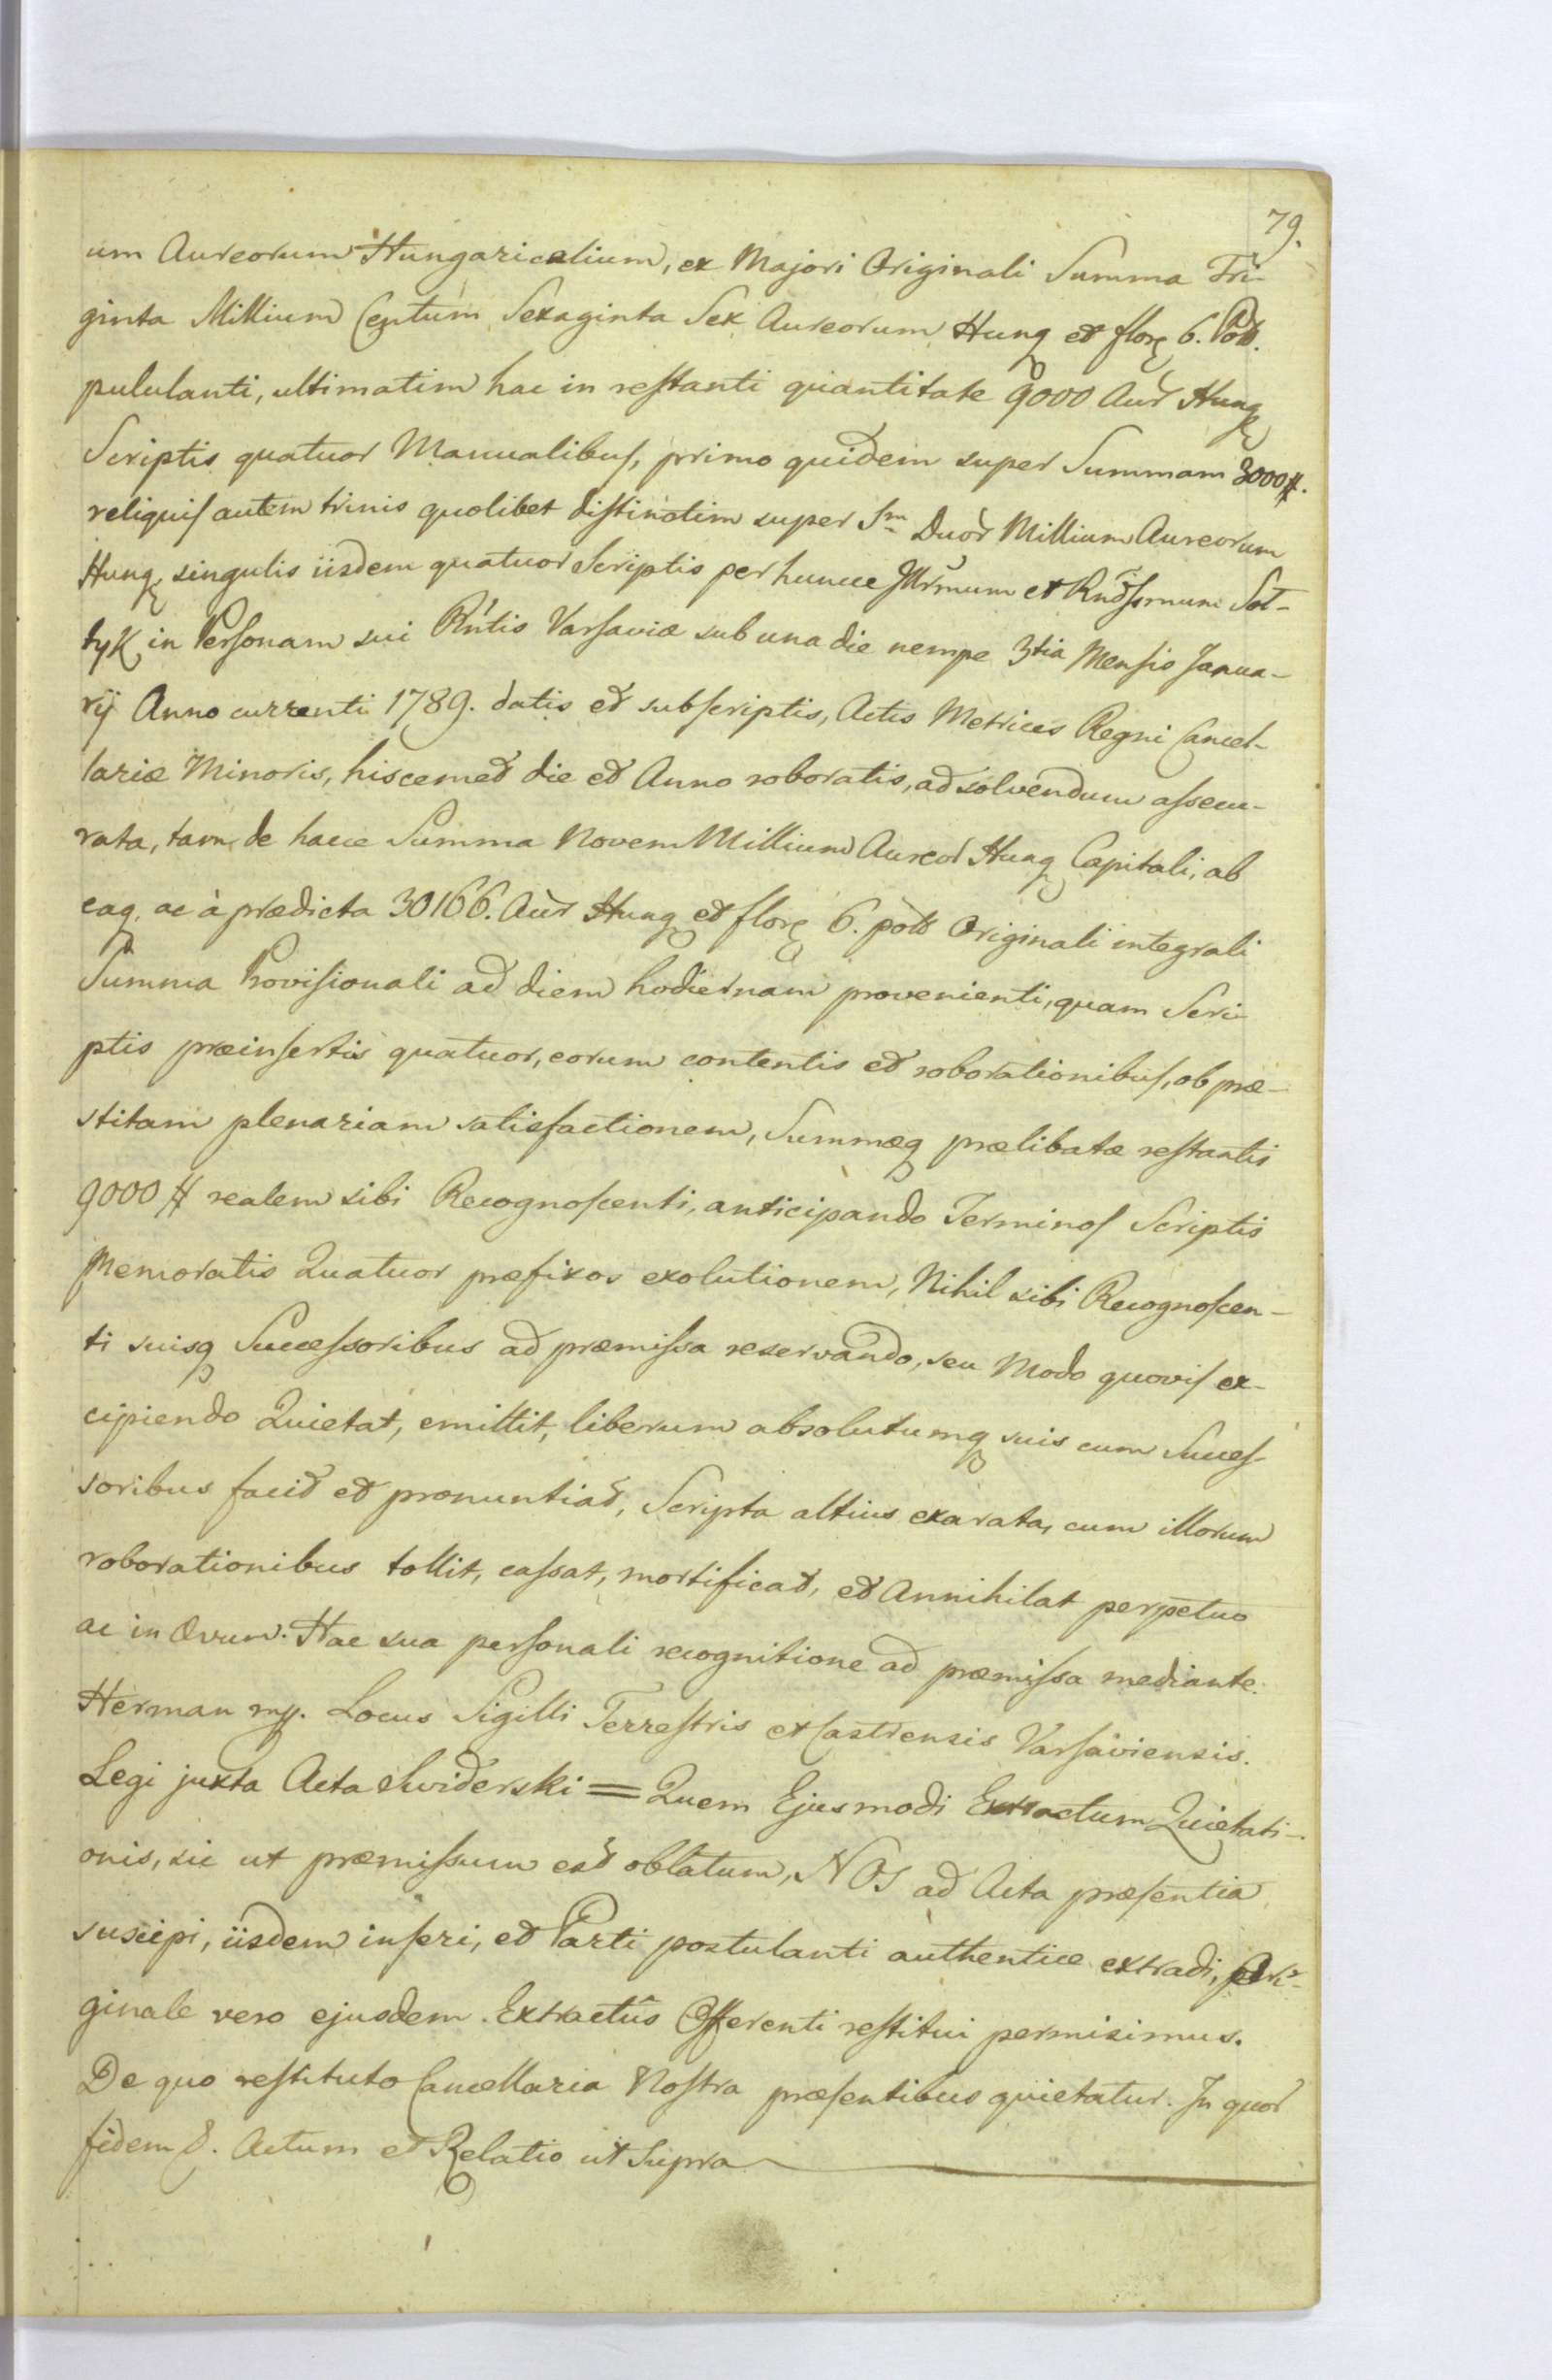 79.
um Aureorum Hungaricalium, ex Majori Originali Summa Tri-
ginta Millium Centum Sexaginta Sex Aureorum Hung et flor 6. Poll.
pululanti, ultimatim hac in restanti quantitate 9000 Aur Hung
Scriptis quatuor Manualibus, primo quidem super Summam 3000 #.
reliquis autem trinis quolibet distinctim super Sm Duor Millium Aureorum
Hung singulis iisdem quatuor Scriptis per huncce Illrmum et Rndssmum Sol-
tyk in Personam sui Rntis Varsaviæ sub una die nempe 3tia Mensis Janua-
rij Anno currenti 1789. datis et subscriptis, Actis Metrices Regni Cancel-
lariæ Minoris, hiscemet die et Anno roboratis, ad solvendum assecu-
rata, tam de hacce Summa Novem Millium Aureor Hung Capitali, ab
eaq ac à prædicta 30166. Aur Hung et flor 6. poll Originali integrali
Summa Provisionali ad diem hodiernam provenienti, quam Scri-
ptis præinsertis quatuor, eorum contentis et roborationibus, ob præ-
stitam plenariam satisfactionem, Summæq prælibatæ restantis
9000 # realem sibi Recognoscenti, anticipando Terminos Scriptis
Memoratis Quatuor præfixos exolutionem, Nihil sibi Recognoscen-
ti suisq Successoribus ad præmissa reservando, seu Modo quovis ex-
cipiendo Quietat, emittit, liberum absolutumq suis cum Succes-
soribus facit et pronuntiat, Scripta altius exarata, cum illorum
roborationibus tollit, cassat, mortificat, et Annihilat perpetuo
ac in Ævum. Hac sua personali recognitione ad præmissa mediante.
Herman mp. Locus Sigilli Terrestris et Castrensis Varsaviensis.
Legi juxta Acta Swiderski = Quem Ejusmodi Extractum Quietati-
onis, sic ut præmissum est oblatum, NOS ad Acta præsentia
suscipi, iisdem inseri, et Parti postulanti authentice extradi, Ori-
ginale vero ejusdem Extractûs Offerenti restitui permisimus.
De quo restituto Cancellaria Nostra præsentibus quietatur. In quor
fidem &. Actum et Relatio ut Supra